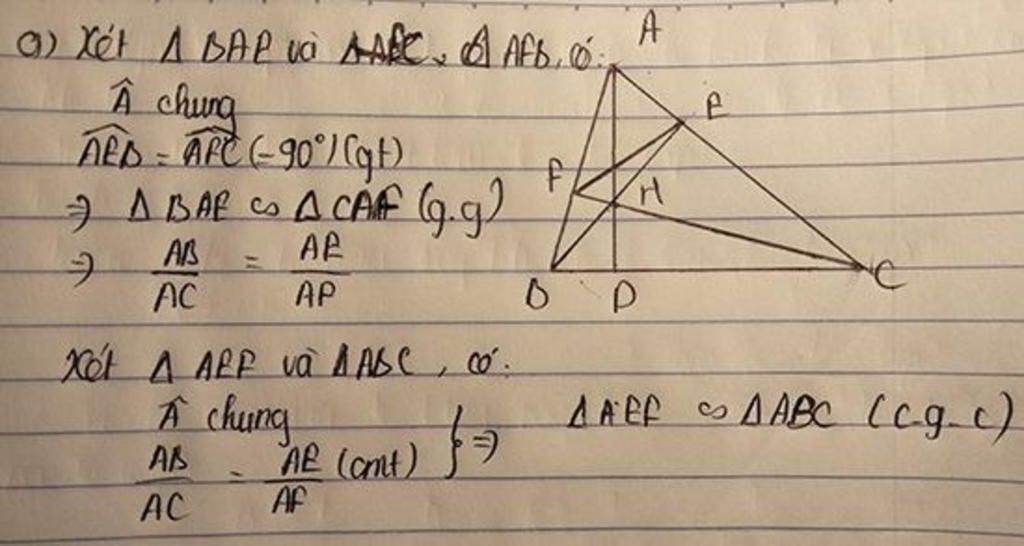 a) Xét Δ BAE và Δ AFB, có:
 chung
AEB = AFC (=90°) (gt)
⇒ Δ BAE ∽ Δ CAF (g.g)
⇒ AB/AC = AE/AF
Xét Δ AEF và Δ ABC, có:
 chung
AB/AC = AE/AF (cmt) } ⇒ Δ AEF ∽ Δ ABC (c-g-c)
A
E
F
H
B
D
C